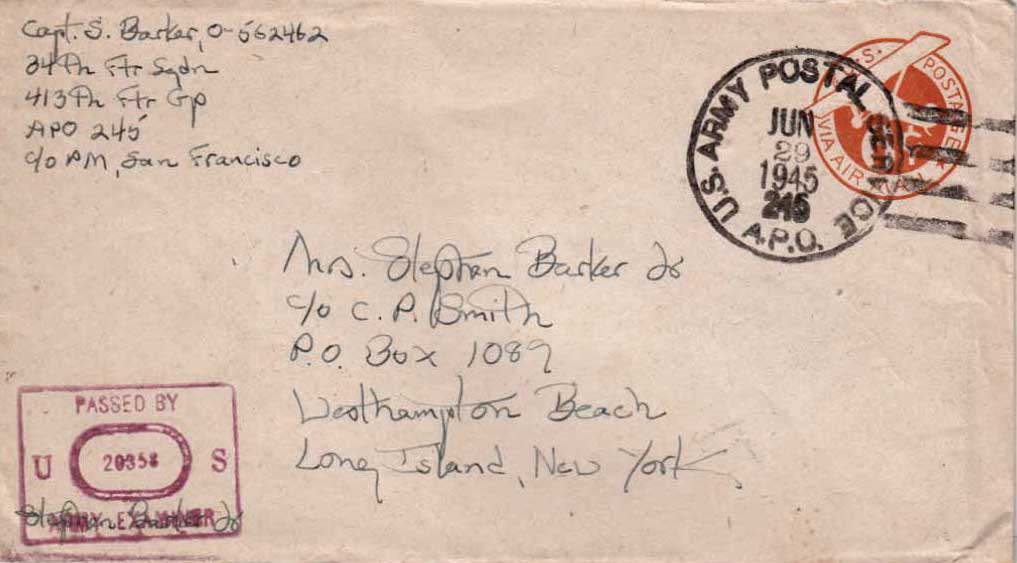 Capt. S. Barker, O-562462
34th Ftr Sqdn
413th Ftr Gp
APO 245
c/o PM, San Francisco
U.S. ARMY POSTAL SERVICE
JUN
29
1945
245
A.P.O.
U.S. POSTAGE
VIA AIR MAIL
Mrs. Stephan Barker Jr
c/o C. P. Smith
P.O. Box 1089
Westhampton Beach
Long Island, New York
PASSED BY
U 20358 S
ARMY EXAMINER
Stephan Barker Jr